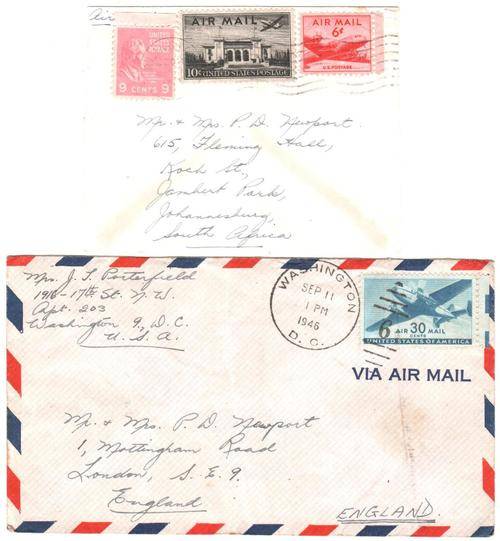 Air
UNITED STATES POSTAGE
9 CENTS 9
AIR MAIL
10¢ UNITED STATES POSTAGE
AIR MAIL
6¢
U.S. POSTAGE
Mr. & Mrs. P. D. Newport.
615, Fleming Hall,
Koch St.,
Jambert Park,
Johannesburg,
South Africa
Mrs. J. T. Porterfield
1916-17th St. N. W.
Apt. 203
Washington 9, D.C.
U.S.A.
WASHINGTON
SEP 11
1 PM
1946
D. C.
6
AIR 30 MAIL
CENTS
UNITED STATES OF AMERICA
VIA AIR MAIL
Mr. & Mrs. P. D. Newport
1, Mottingham Road
London, S. E. 9.
England
ENGLAND.